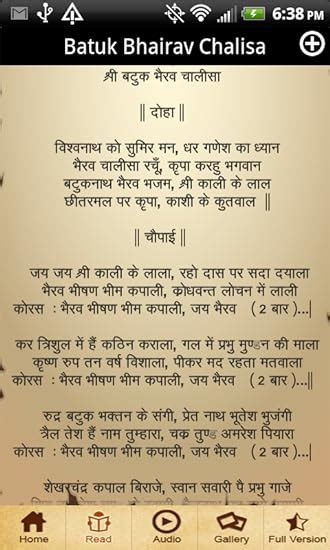 6:38 PM
Batuk Bhairav Chalisa
श्री बटुक भैरव चालीसा
|| दोहा ||
विश्वनाथ को सुमिर मन, धर गणेश का ध्यान
भैरव चालीसा रचूँ, कृपा करहु भगवान
बटुकनाथ भैरव भजम, श्री काली के लाल
छीतरमल पर कृपा, काशी के कुतवाल ||
|| चौपाई ||
जय जय श्री काली के लाला, रहो दास पर सदा दयाला
भैरव भीषण भीम कपाली, क्रोधवन्त लोचन में लाली
कोरस : भैरव भीषण भीम कपाली, जय भैरव (2 बार)...|
कर त्रिशुल में हैं कठिन कराला, गल में प्रभु मुण्डन की माला
कृष्ण रुप तन वर्ष विशाला, पीकर मद रहता मतवाला
कोरस : भैरव भीषण भीम कपाली, जय भैरव (2 बार)...|
रुद्र बटुक भक्तन के संगी, प्रेत नाथ भूतेश भुजंगी
त्रैल तेश हैं नाम तुम्हारा, चक्र तुण्ड अमरेश पियारा
कोरस : भैरव भीषण भीम कपाली, जय भैरव (2 बार)...|
शेखरचंद्र कपाल बिराजे, स्वान सवारी पै प्रभु गाजे
Home Read Audio Gallery Full Version